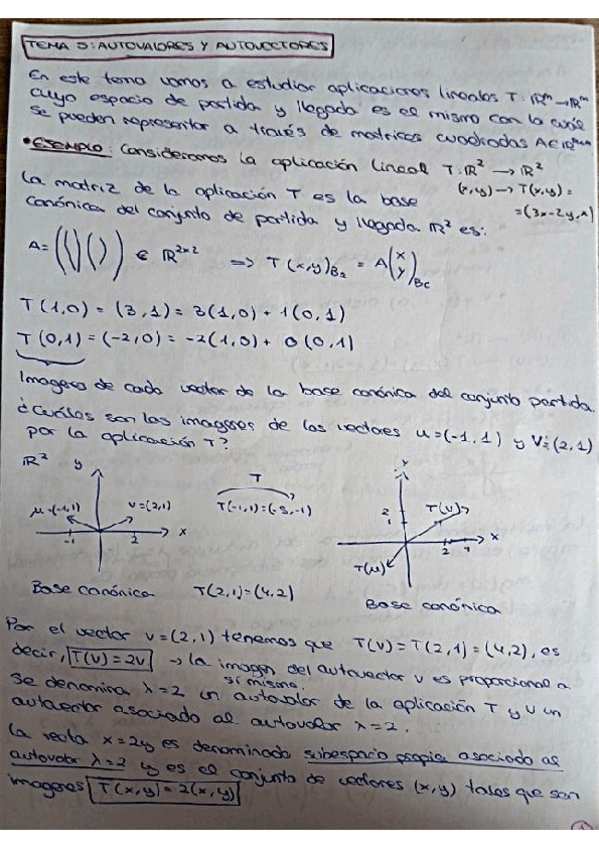 TEMA 5: AUTOVALORES Y AUTOVECTORES
En este tema vamos a estudiar aplicaciones lineales T: ℝᵐ → ℝᵐ
cuyo espacio de partida y llegada es el mismo con lo cual
se pueden representar a través de matrices cuadradas A∈
• EJEMPLO: Consideramos la aplicación lineal T: ℝ² → ℝ²
(x,y) → T(x,y) =
= (3x-2y, x)
La matriz de la aplicación T es la base
canónica del conjunto de partida y llegada ℝ² es:
A = (( )( )) ∈ ℝ²ˣ² => T(x,y)B₂ = A(x y)Bc
T(1,0) = (3,1) = 3(1,0) + 1(0,1)
T(0,1) = (-2,0) = -2(1,0) + 0(0,1)
Imagenes de cada vector de la base canónica del conjunto partida.
¿Cuáles son las imagenes de los vectores u=(-1,1) y V=(2,1)
por la aplicación T?
ℝ² y
μ=(-1,1) v=(2,1)
-1 2 x
T
T(-1,1)=(-5,-1)
y
2
1
T(v)
2 4 x
T(μ)
Base canónica T(2,1)=(4,2) Base canónica
Por el vector v=(2,1) tenemos que T(v)=T(2,1)=(4,2), es
decir, T(v)=2v → la imagen del autovector v es proporcional a
sí misma.
Se denomina λ=2 un autovalor de la aplicación T y v un
autovector asociado al autovalor λ=2.
La recta x=2y es denominado subespacio propio asociado al
autovalor λ=2 y es el conjunto de vectores (x,y) tales que son
imagenes T(x,y)=2(x,y)
1